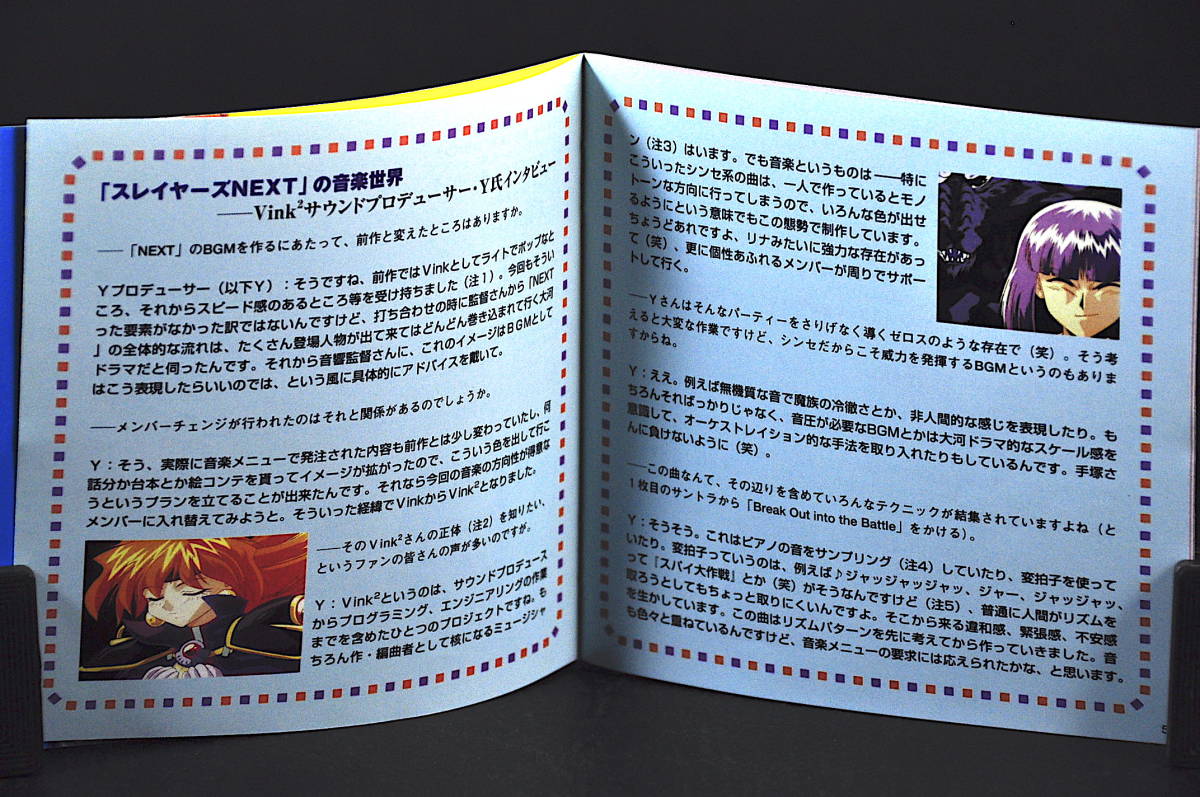 「スレイヤーズNEXT」の音楽世界
――Vink²サウンドプロデューサー・Y氏インタビュー
――「NEXT」のBGMを作るにあたって、前作と変えたところはありますか。
Yプロデューサー（以下Y）：そうですね、前作ではVinkとしてライトでポップなと
ころ、それからスピード感のあるところ等を受け持ちました（注1）。今回もそうい
った要素がなかった訳ではないんですけど、打ち合わせの時に監督さんから「NEXT
」の全体的な流れは、たくさん登場人物が出て来てはどんどん巻き込まれて行く大河
ドラマだと伺ったんです。それから音響監督さんに、これのイメージはBGMとして
はこう表現したらいいのでは、という風に具体的にアドバイスを戴いて。
――メンバーチェンジが行われたのはそれと関係があるのでしょうか。
Y：そう、実際に音楽メニューで発注された内容も前作とは少し変わっていたし、何
話分か台本とか絵コンテを貰ってイメージが拡がったので、こういう色を出して行こ
うというプランを立てることが出来たんです。それなら今回の音楽の方向性が得意な
メンバーに入れ替えてみようと。そういった経緯でVinkからVink²となりました。
――そのVink²さんの正体（注2）を知りたい、
というファンの皆さんの声が多いのですが。
Y：Vink²というのは、サウンドプロデュース
からプログラミング、エンジニアリングの作業
までを含めたひとつのプロジェクトですね。も
ちろん作・編曲者として核になるミュージシャ
ン（注3）はいます。でも音楽というものは――特に
こういったシンセ系の曲は、一人で作っているとモノ
トーンな方向に行ってしまうので、いろんな色が出せ
るようにという意味でもこの態勢で制作しています。
ちょうどあれですよ、リナみたいに強力な存在があっ
て（笑）、更に個性あふれるメンバーが周りでサポー
トして行く。
――Yさんはそんなパーティーをさりげなく導くゼロスのような存在で（笑）。そう考
えると大変な作業ですけど、シンセだからこそ威力を発揮するBGMというのもありま
すからね。
Y：ええ。例えば無機質な音で魔族の冷徹さとか、非人間的な感じを表現したり。も
ちろんそればっかりじゃなく、音圧が必要なBGMとかは大河ドラマ的なスケール感を
意識して、オーケストレイション的な手法を取り入れたりもしているんです。手塚さ
んに負けないように（笑）。
――この曲なんて、その辺りを含めていろんなテクニックが結集されていますよね（と
1枚目のサントラから「Break Out into the Battle」をかける）。
Y：そうそう。これはピアノの音をサンプリング（注4）していたり、変拍子を使って
いたり。変拍子っていうのは、例えば♪ジャッジャッジャッ、ジャー、ジャッジャッ、
って『スパイ大作戦』とか（笑）がそうなんですけど（注5）、普通に人間がリズムを
取ろうとしてもちょっと取りにくいんですよ。そこから来る違和感、緊張感、不安感
を生かしています。この曲はリズムパターンを先に考えてから作っていきました。音
も色々と重ねているんですけど、音楽メニューの要求には応えられたかな、と思います。